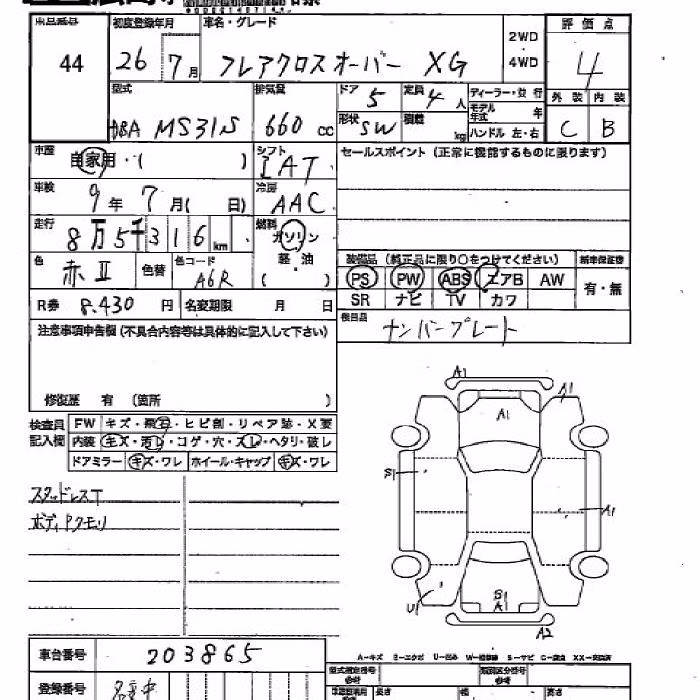 初度登録年月 車名・グレード 評価点
44 26 7月 フレアクロスオーバー XG 2WD 4WD 4
型式 排気量 ドア 5 定員 4人 ディーラー・並行 外装 内装
DBA MS31S 660 cc 形状 SW 積載 kg モデル年式 年 ハンドル 左・右 C B
車歴 自家用・( ) シフト IAT セールスポイント (正常に機能するものに限ります)
車検 9年 7月( 日) 冷房 AAC
走行 8万5千316km 燃料 ガソリン 軽・油 ( )
装備品 (純正品に限り○をつけてください) 新車保証書
色 赤II 色替 色コード A6R PS PW ABS エアB AW 有・無
SR ナビ TV カワ
R券 8,430 円 名変期限 月 日
後日品 ナンバープレート
注意事項申告欄 (不具合内容等は具体的に記入して下さい)
修復歴 有 (箇所 )
検査員記入欄 FW キズ・飛石・ヒビ割・リペア跡・X要
内装 キズ・汚レ・コゲ・穴・スレ・ヘタリ・破レ
ドアミラー キズ・ワレ ホイール・キャップ キズ・ワレ
スタッドレスT
ボディPクモリ
A1
A1
A1
S1
A1
U1
S1
A1
A2
車台番号 203865
A-キズ E-エクボ U-凹み W-補修跡 S-サビ C-腐食 XX-交換済
登録番号 型式指定番号 類別区分番号
長さ 幅 高さ